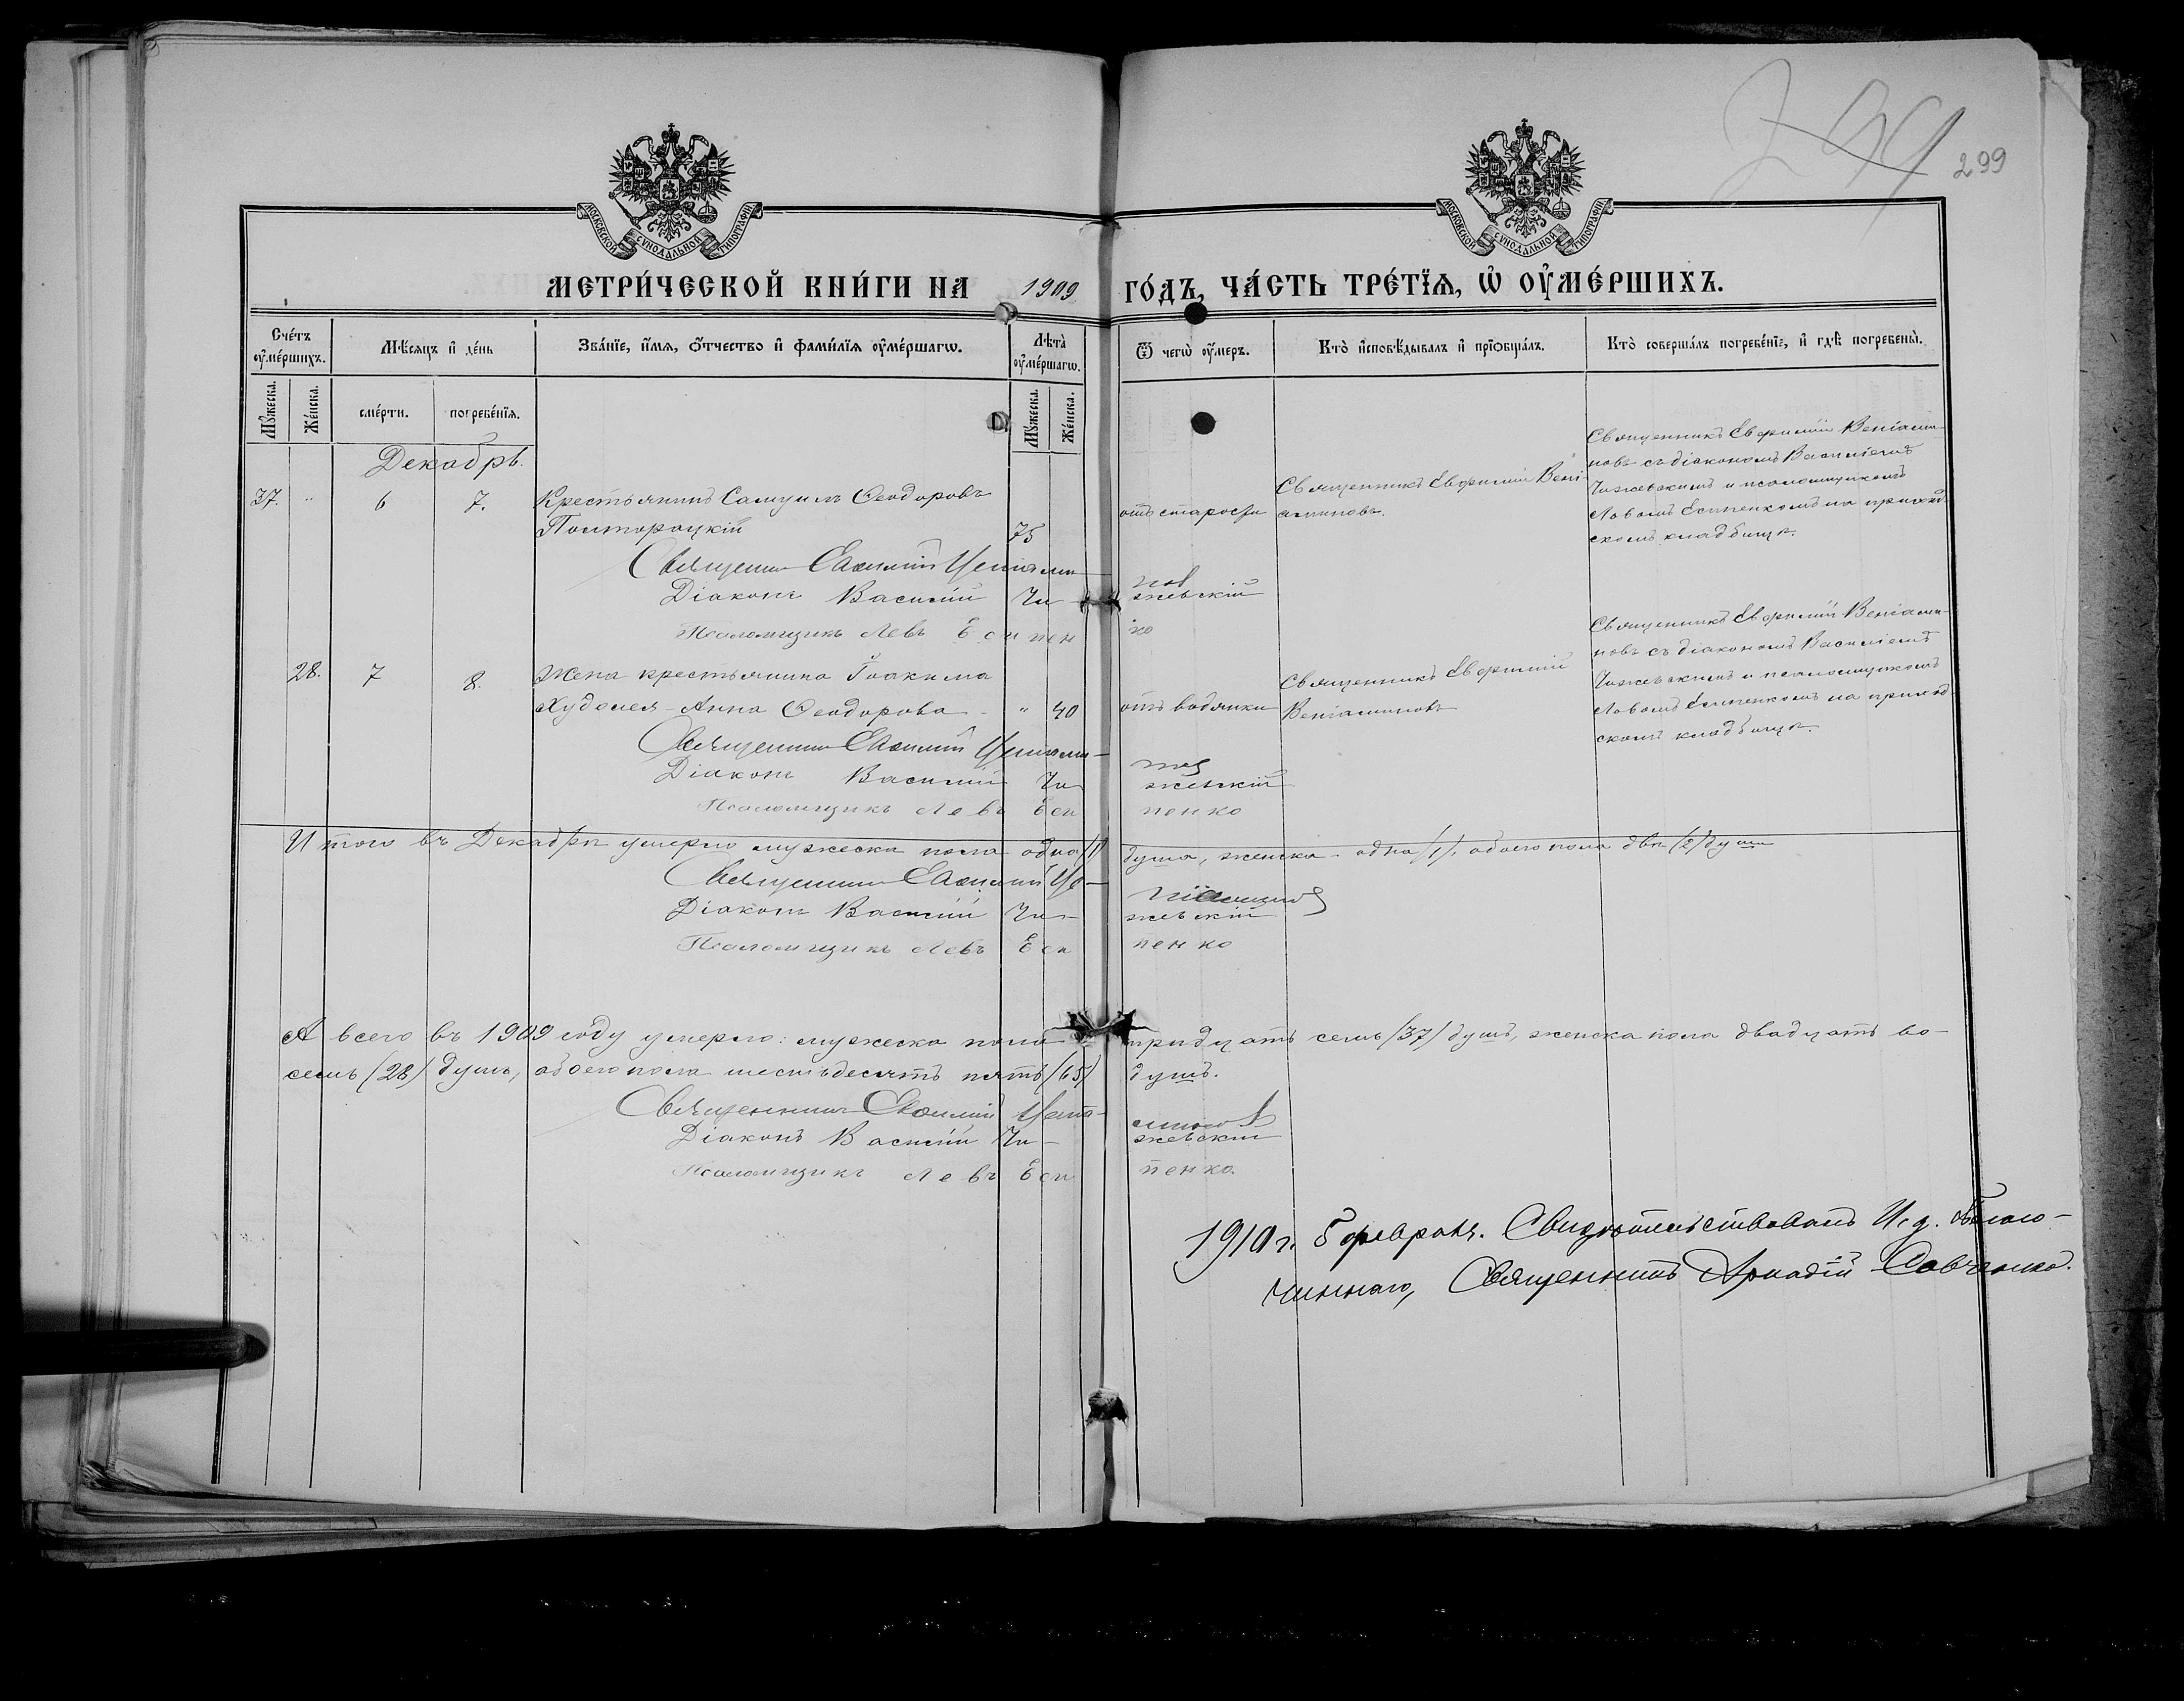 299
299
МОСКОВСКОЙ СѴНОДАЛЬНОЙ ТИПОГРАФІИ
МОСКОВСКОЙ СѴНОДАЛЬНОЙ ТИПОГРАФІИ
МЕТРИ́ЧЕСКОЙ КНИ́ГИ НА 1909 ГО́ДЪ, ЧА́СТЬ ТРЕ́ТЇѦ, Ѡ҆ ОУ҆МЕ́РШИХЪ.
Сче́тъ оу҆ме́ршихъ.
Мꙋ́жеска.
Же́нска.
Мѣ́сяцъ и҆ де́нь
сме́рти.
погребе́нїѧ.
Зва́нїе, и҆́мѧ, ѻ҆́тчество и҆ фами́лїѧ оу҆ме́ршагѡ.
Лѣ́та̀ оу҆ме́ршагѡ.
Мꙋ́жеска.
Же́нска.
Ѿ чегѡ̀ оу҆́меръ.
Кто̀ и҆сповѣ́дывалъ и҆ прїѡбща́лъ.
Кто̀ соверша́лъ погребе́нїе, и҆ гдѣ̀ погребены̀.
Декабрь.
37. „ 6 7. Крестьянинъ Самуилъ Ѳеодоровъ
Полторацкій 75
отъ старости
Священникъ Евфимій Вені-
аминовъ.
Священникъ Евфимій Веніами-
новъ съ діакономъ Василіемъ
Чижевскимъ и псаломщикомъ
Львомъ Есипенкомъ на приход-
скомъ кладбищѣ.
Священникъ Евфимій Веніами-нов
Діаконъ Василій Чижевскій
Псаломщикъ Левъ Есипенко
28. 7 8. Жена крестьянина Іоакима
Худолея - Анна Ѳеодорова - „ 40
отъ водянки
Священникъ Евфимій
Веніаминовъ
Священникъ Евфимій Веніами-
новъ съ діакономъ Василіемъ
Чижевскимъ и псаломщикомъ
Львомъ Есипенкомъ на приход-
скомъ кладбищѣ.
Священникъ Евфимій Веніами-нов
Діаконъ Василій Чижевскій
Псаломщикъ Левъ Есипенко
Итого въ Декабрѣ умерло мужеска пола одна /1/ душа, женска - одна /1/, обоего пола двѣ /2/ души
Священникъ Евфимій Ве-ніаминов
Діаконъ Василій Чи-жевскій
Псаломщикъ Левъ Есипенко
А всего въ 1909 году умерло: мужеска пола тридцать семь /37/ душъ, женска пола двадцать во-
семь /28/ душъ, обоего пола шестьдесятъ пять /65/ душъ.
Священникъ Евфимій Веніа-минов
Діаконъ Василій Чи-жевскій
Псаломщикъ Левъ Есипенко.
1910 г. 5 февраля. Свидѣтельствовалъ И. д. Благо-
чиннаго, Священникъ Аркадій Савченко.